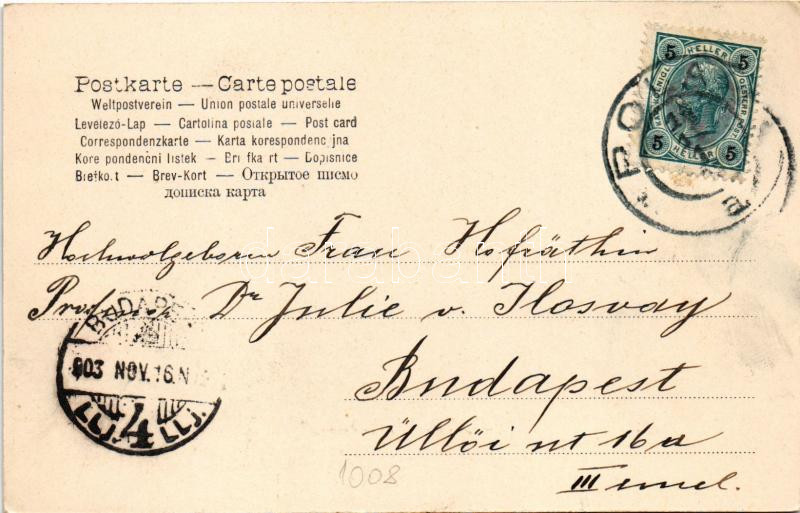 Postkarte — Carte postale
Weltpostverein — Union postale universelle
Levelező-Lap — Cartolina postale — Post card
Correspondenzkarte — Karta korespondenc jna
Kore pondenční lístek — Bri fka rt — Dopisnice
Brefko.t — Brev-Kort — Открытое письмо
дописка карта
5 HELLER 5
KAIS. KOENIGL. OESTERR. POST
5 HELLER 5
POLA
Hochwolgeboren Frau Hofräthin
Dr Julie v. Ilosvay
Budapest
Üllői út 16a
III emel.
BUDAPEST
903 NOV. 16. N
4
LLJ. LLJ.
1008
darabanth